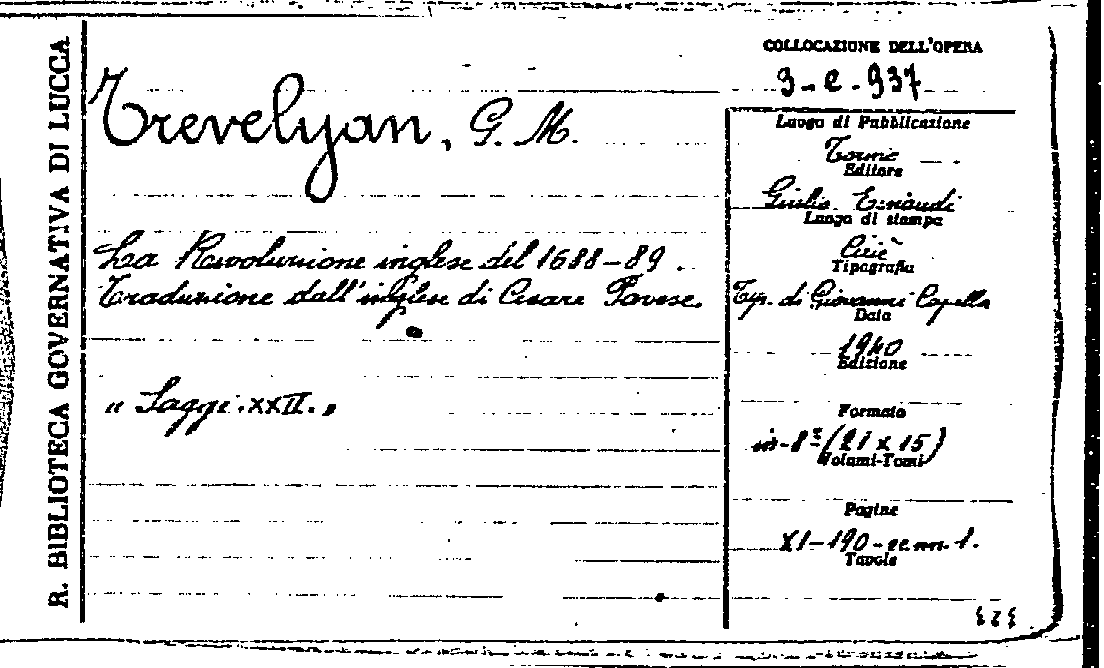 R. BIBLIOTECA GOVERNATIVA DI LUCCA
Trevelyan, G. M.
La Rivoluzione inglese del 1688-89.
Traduzione dall'inglese di Cesare Pavese.
"Saggi. XXII."
COLLOCAZIONE DELL'OPERA
3-C-937
Luogo di Pubblicazione
Torino
Editore
Giulio Einaudi
Luogo di stampa
Ciriè
Tipografia
Tip. di Giovanni Capella
Data
1940
Edizione
Formato
in-8º (21 x 15)
Volumi-Tomi
Pagine
XI-190-
Tavole